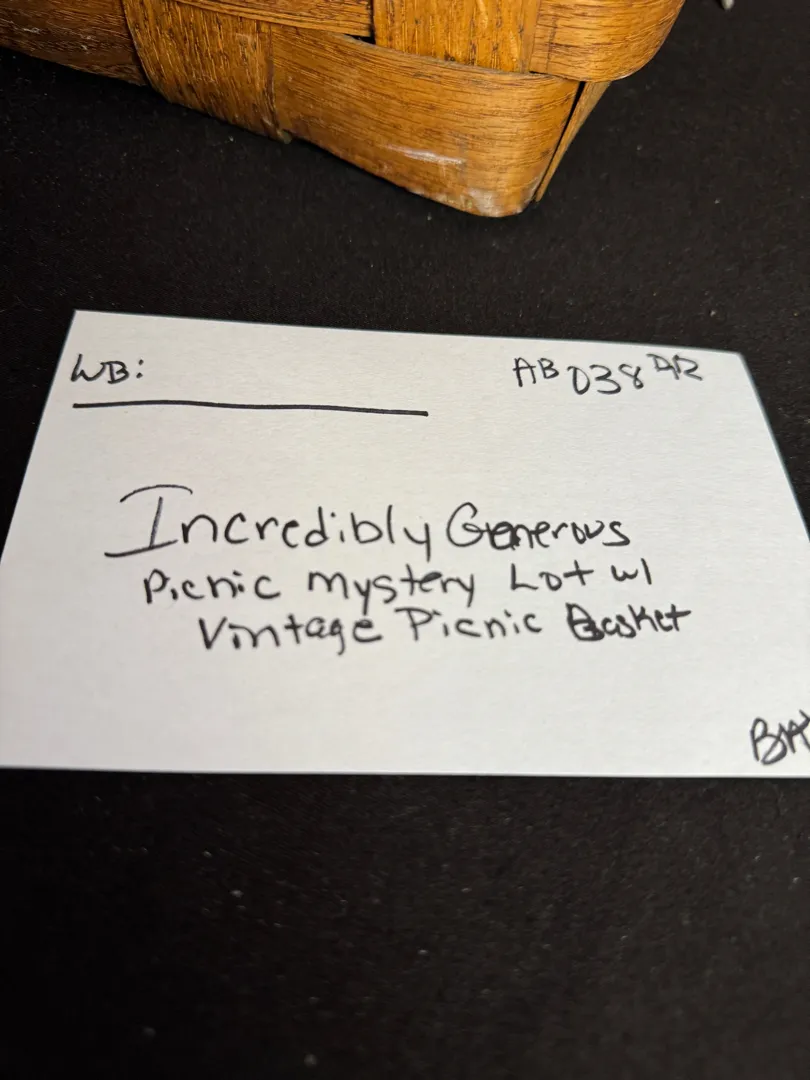 WB: AB 038 DR
Incredibly Generous
Picnic Mystery Lot w/
Vintage Picnic Basket